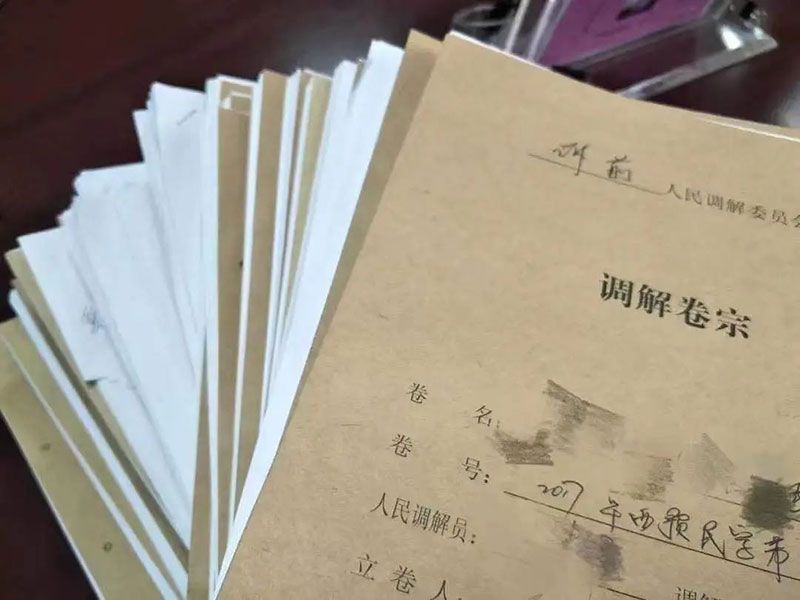 诉前 人民调解委员会
调解卷宗
卷 名:
卷 号: 2017年西预民字第
人民调解员:
立卷人: